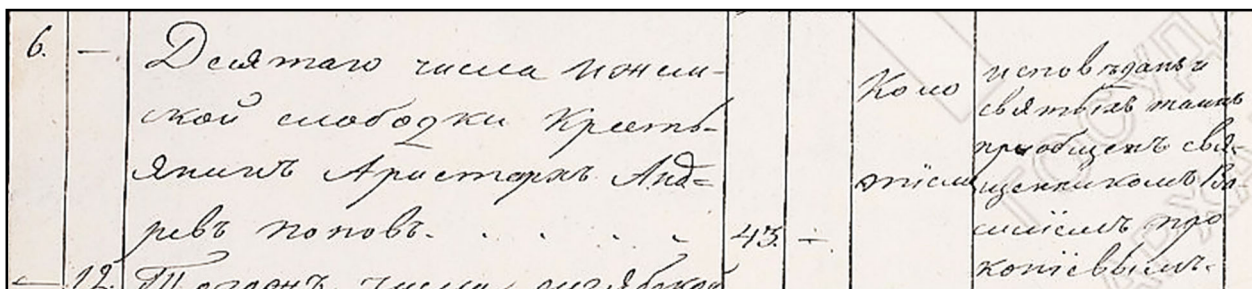 6. — Десятаго числа ижем-
ской слободки Кресть-
янинъ Аристархъ Анд=
ревъ поповъ. . . . . 43. —
Коло
тіем
исповѣданъ и
святыхъ таинъ
пріобщенъ свя-
щенникомъ Ва-
силіемъ про
копіевымъ.
— 12. Тогожъ числа
ГОСУДА
АРХ